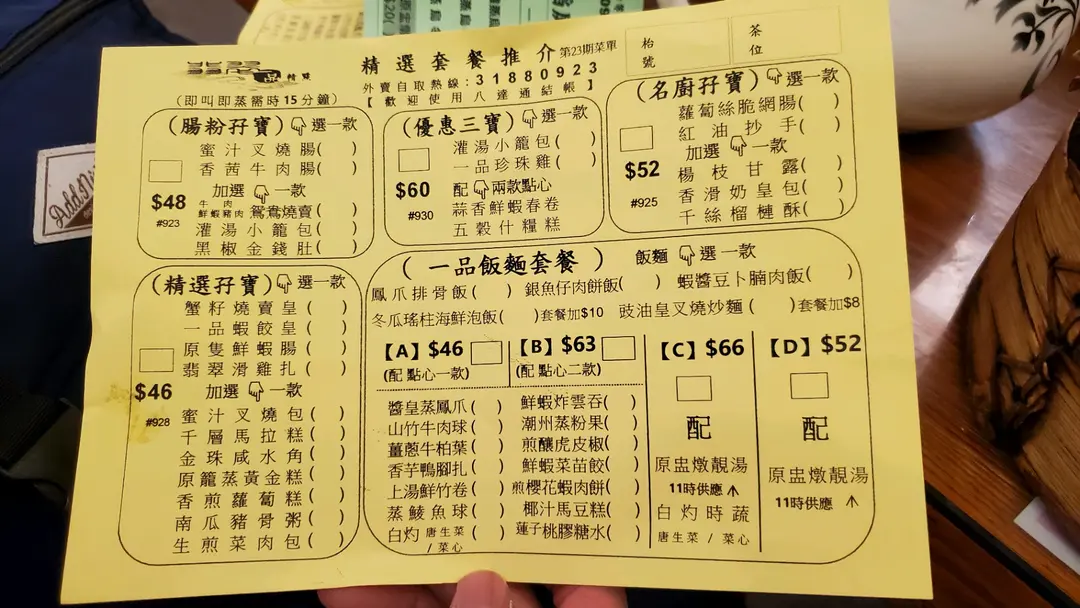 精選套餐推介 第23期菜單
外賣自取熱線:31880923
【歡迎使用八達通結帳】
枱號
茶位
精點
(即叫即蒸需時15分鐘)
(腸粉孖寶) 選一款
蜜汁叉燒腸( )
香茜牛肉腸( )
加選 一款
$48
#923
牛肉
鮮蝦豬肉 鴛鴦燒賣( )
灌湯小籠包( )
黑椒金錢肚( )
(優惠三寶) 選一款
灌湯小籠包( )
一品珍珠雞( )
$60
#930
配 兩款點心
蒜香鮮蝦春卷
五穀什糧糕
(名廚孖寶) 選一款
蘿蔔絲脆網腸( )
紅油抄手( )
加選 一款
$52
#925
楊枝甘露( )
香滑奶皇包( )
千絲榴槤酥( )
(精選孖寶) 選一款
蟹籽燒賣皇( )
一品蝦餃皇( )
原隻鮮蝦腸( )
翡翠滑雞扎( )
$46
#928
加選 一款
蜜汁叉燒包( )
千層馬拉糕( )
金珠咸水角( )
原籠蒸黃金糕( )
香煎蘿蔔糕( )
南瓜豬骨粥( )
生煎菜肉包( )
(一品飯麵套餐) 飯麵 選一款
鳳爪排骨飯( ) 銀魚仔肉餅飯( ) 蝦醬豆卜腩肉飯( )
冬瓜瑤柱海鮮泡飯( )套餐加$10 豉油皇叉燒炒麵( )套餐加$8
【A】$46
(配 點心一款)
醬皇蒸鳳爪( )
山竹牛肉球( )
薑蔥牛柏葉( )
香芋鴨腳扎( )
上湯鮮竹卷( )
蒸鯪魚球( )
白灼 唐生菜 / 菜心( )
【B】$63
(配 點心二款)
鮮蝦炸雲吞( )
潮州蒸粉果( )
煎釀虎皮椒( )
鮮蝦菜苗餃( )
煎櫻花蝦肉餅( )
椰汁馬豆糕( )
蓮子桃膠糖水( )
【C】$66
配
原盅燉靚湯
11時供應
白灼時蔬
唐生菜 / 菜心
【D】$52
配
原盅燉靚湯
11時供應